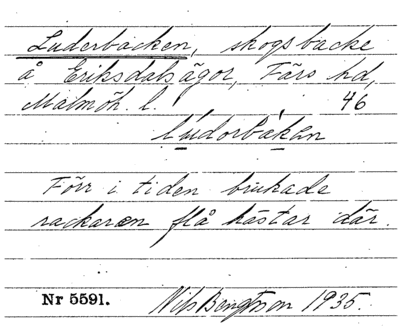 Luderbacken, skogsbacke
å Eriksdalsägor, Färs hd,
Malmöh. l. 46
lúdorbákan
Förr i tiden brukade
rackaren flå hästar där.
Nr 5591. Nils Bengtsson 1935.